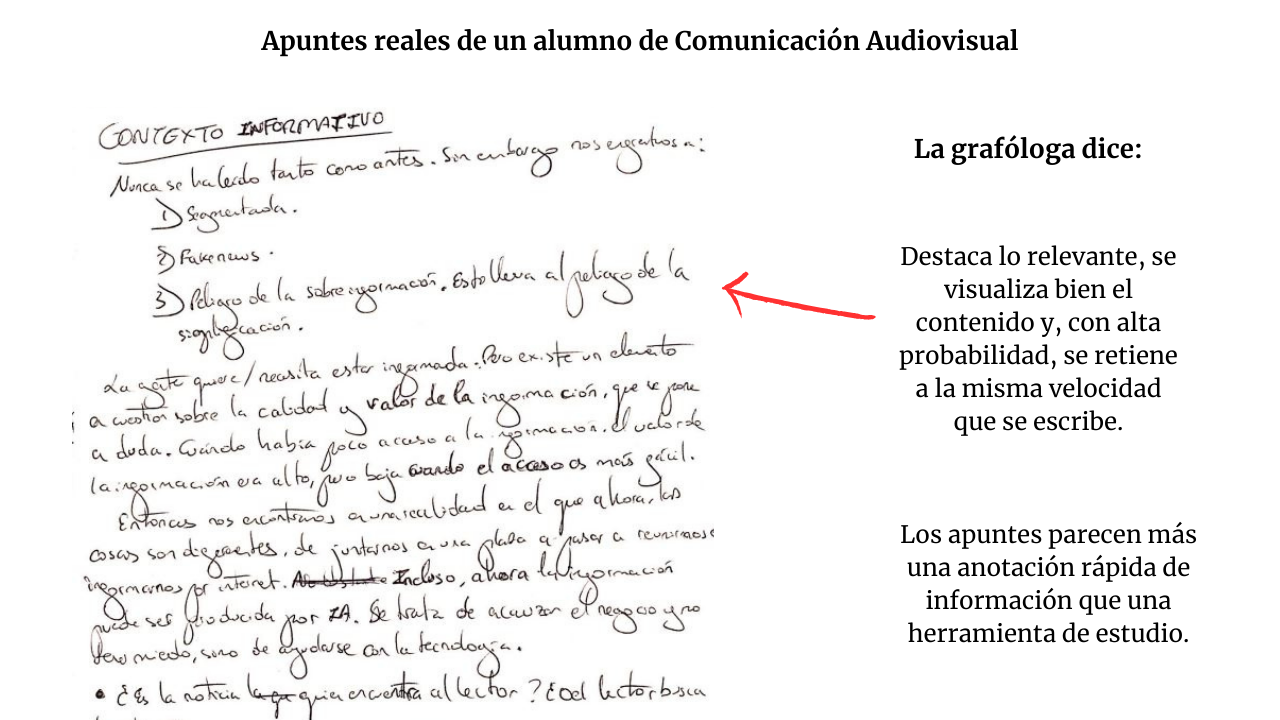 Apuntes reales de un alumno de Comunicación Audiovisual
CONTEXTO INFORMATIVO
Nunca se ha leído tanto como antes. Sin embargo nos enfrentamos a:
1) Segmentada.
2) Fakenews.
3) Peligro de la sobreinformación. Esto lleva al peligro de la
significación.
La gente quiere/necesita estar informada. Pero existe un elemento
a cuestión sobre la calidad y valor de la información, que se pone
a duda. Cuándo había poco acceso a la información. el valor de
la información era alto, pero baja cuando el acceso es más fácil.
Entonces nos encontramos a una realidad en el que ahora, las
cosas son diferentes, de juntarnos en una plaza a pasar a reunirnos e
informarnos por internet. Incluso, ahora la información
puede ser producida por IA. Se trata de el negocio y no
tener miedo, sino de ayudarse con la tecnología.
• ¿Es la noticia quien encuentra al lector? ¿O el lector busca
La grafóloga dice:
Destaca lo relevante, se
visualiza bien el
contenido y, con alta
probabilidad, se retiene
a la misma velocidad
que se escribe.
Los apuntes parecen más
una anotación rápida de
información que una
herramienta de estudio.